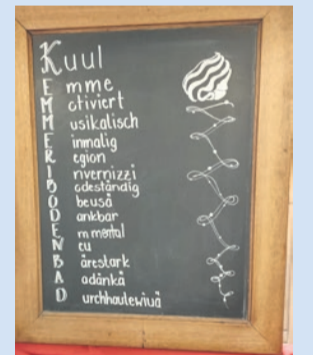 Kuul
Emme
Motiviert
Musikalisch
Einmalig
Region
Invernizzi
Bodeständig
Obeusä
Dankbar
Emmental
Neu
Bärestark
Adänkä
Durchhautewiuä